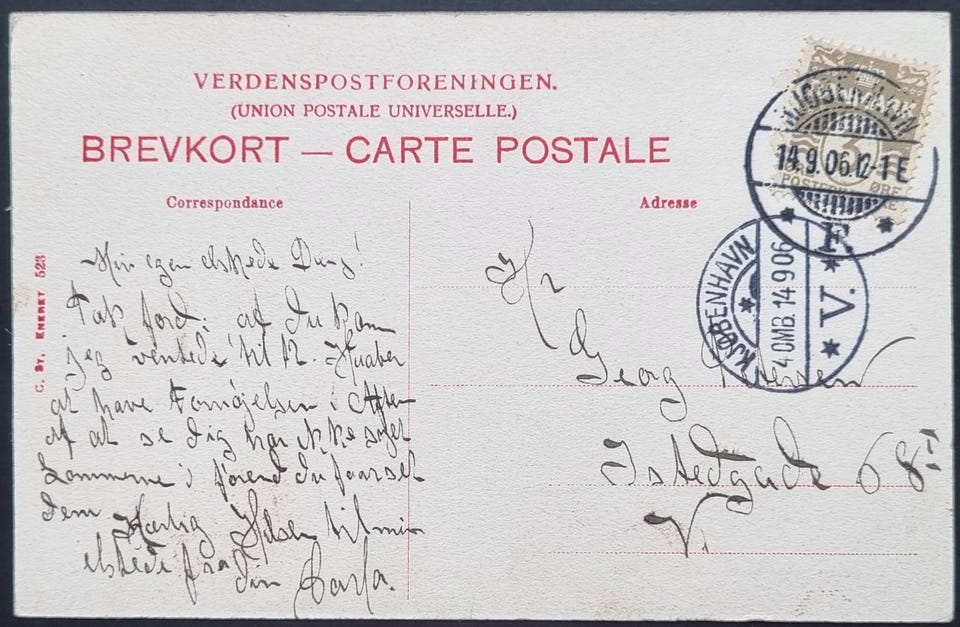 VERDENSPOSTFORENINGEN.
(UNION POSTALE UNIVERSELLE.)
BREVKORT — CARTE POSTALE
Correspondance
Adresse
C. ST. ENERET 523
DANMARK
3
POSTFRIM
ØRE
KJØBENHAVN
14.9.06.12-1 E
F.
KJØBENHAVN
4 OMB. 14 9 06
V.
Min egen elskede Dreng!
Tak fordi at du kom
jeg ventede til 12. Haaber
at have Fornøjelsen i Aften
af at se dig har ikke
i førend du faar set
dem
Kærlig Hilsen til min
elskede fra din
Hr
Georg Petersen
Istedgade 68
V.